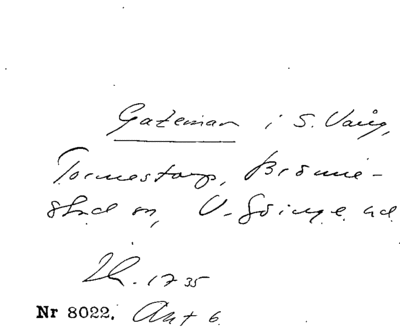 Gateman i S. Vång,
Tormestorp, Brönne-
stad sn, V. Göinge hd
Lh. 1735
Nr 8022. Ant 6.